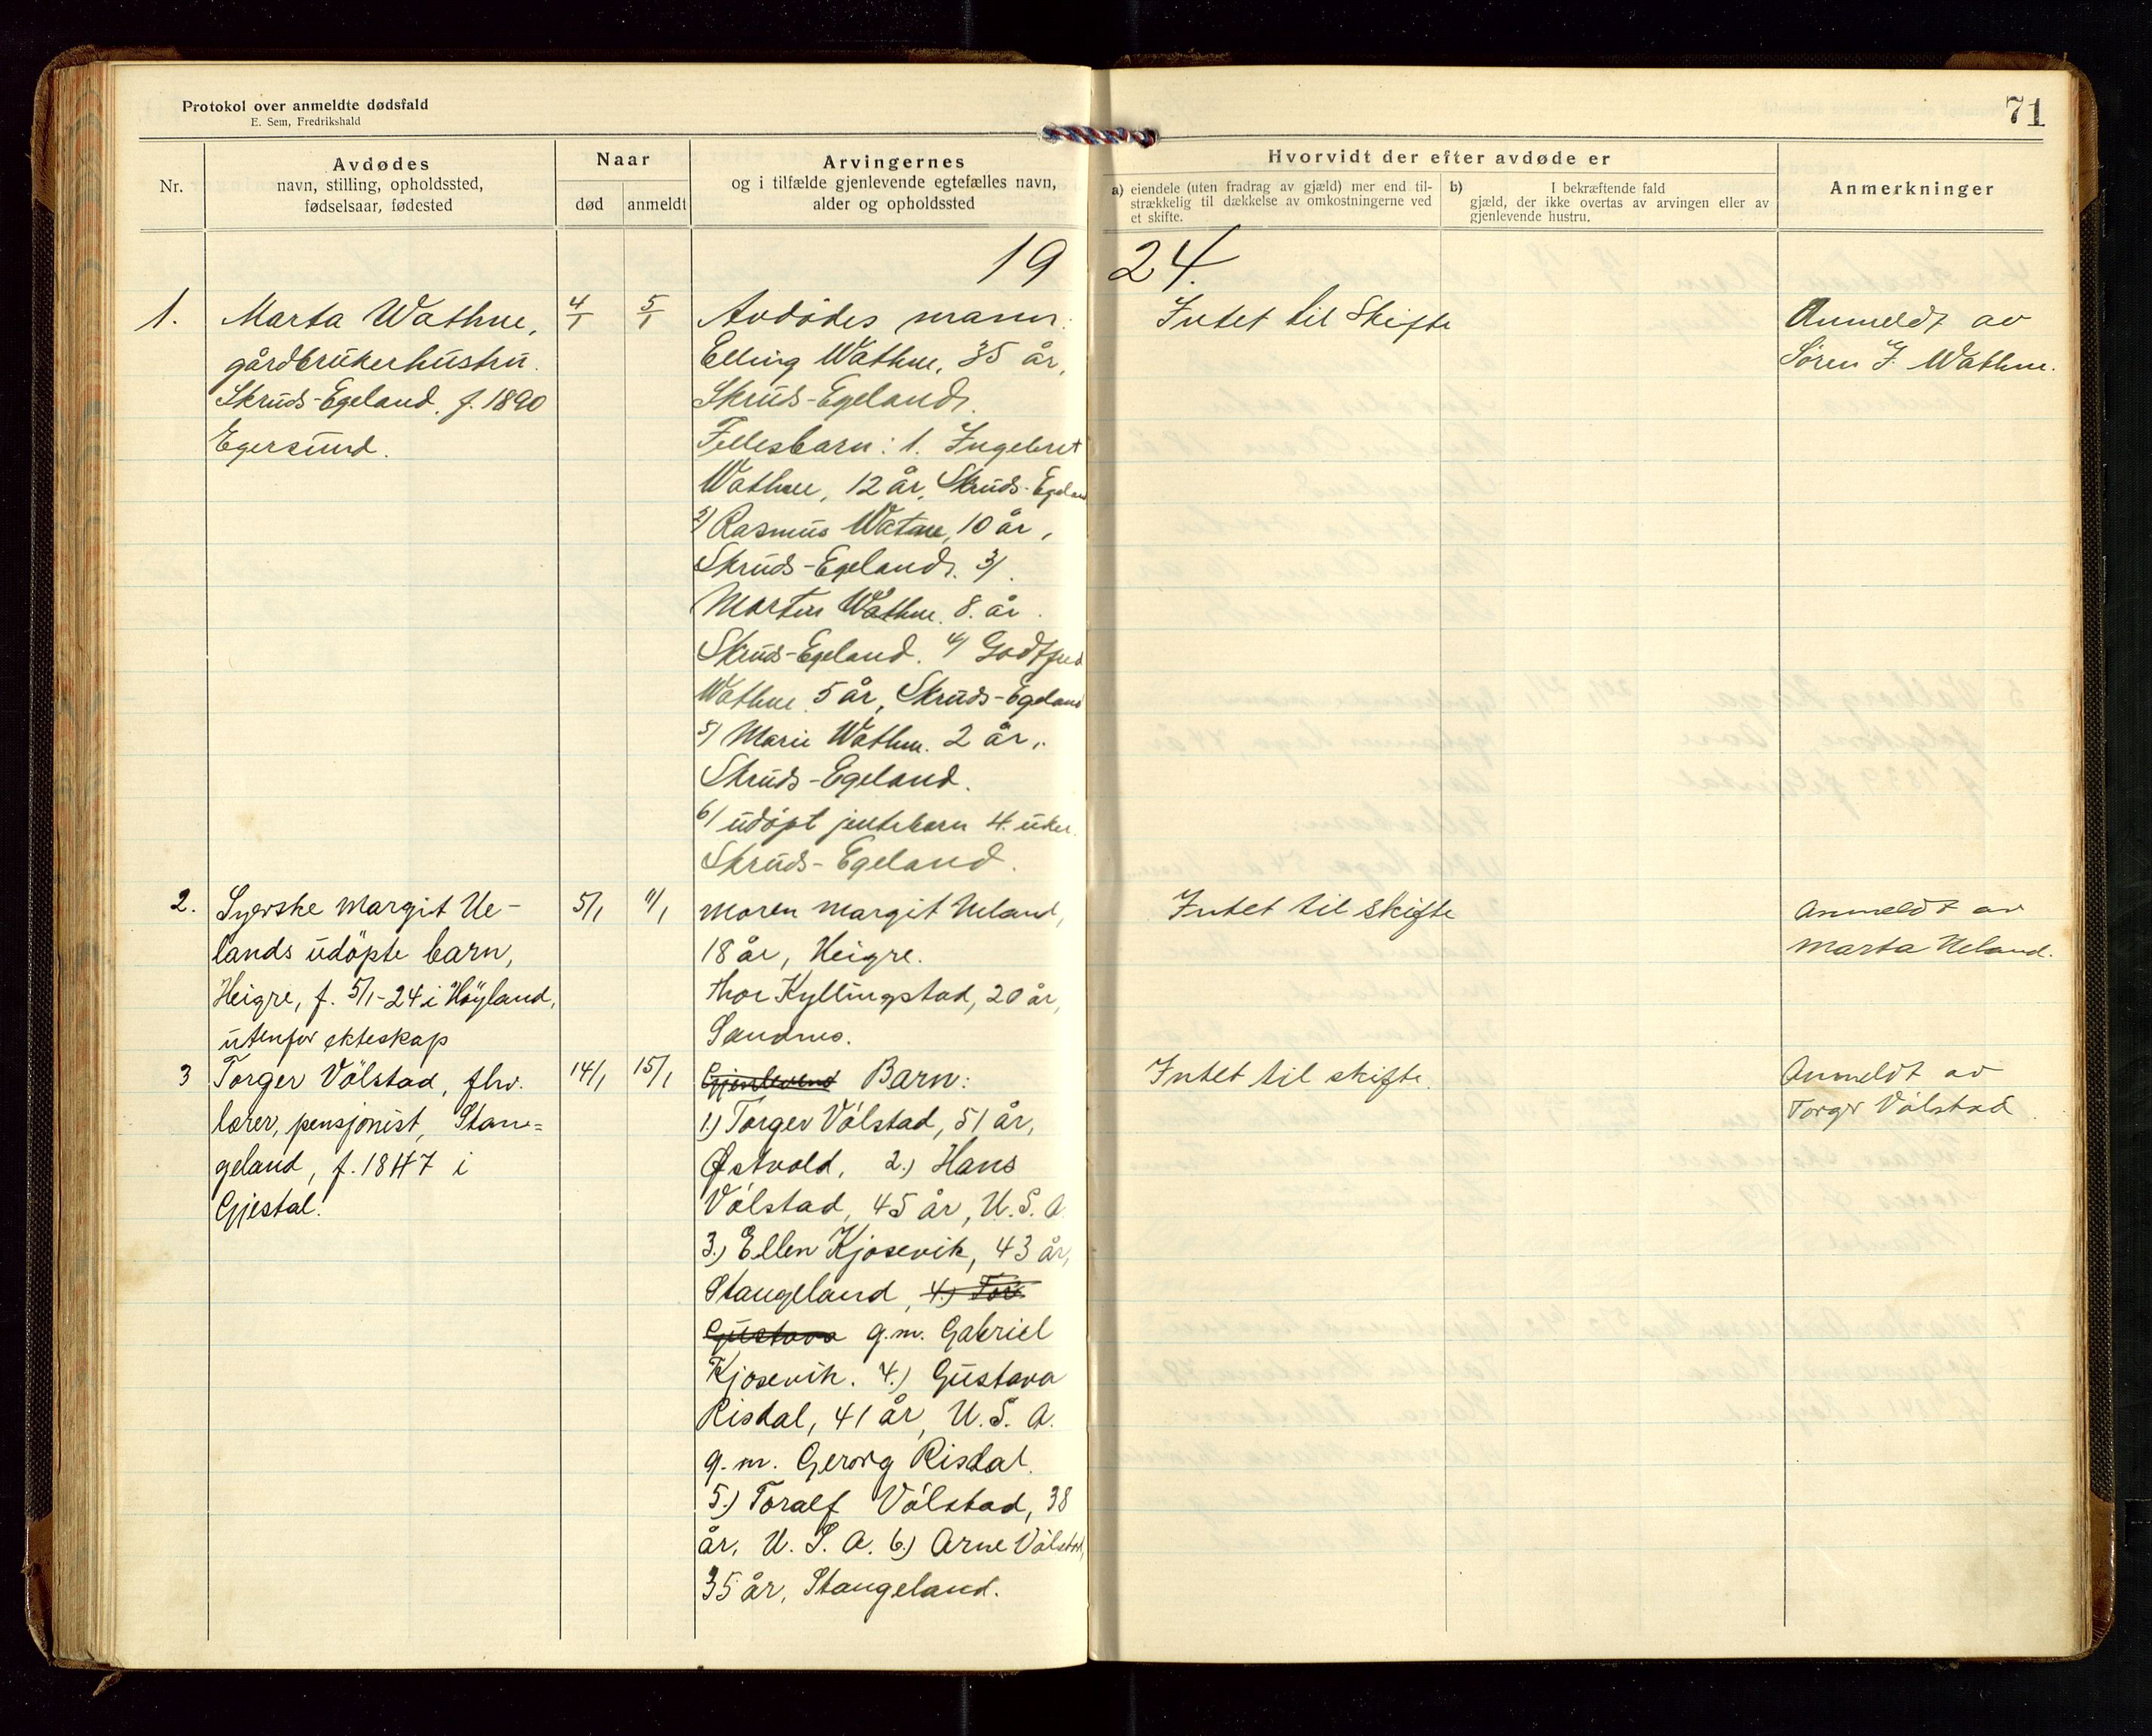 Protokol over anmeldte dødsfald
E. Sem, Fredrikshald
71
Nr.
Avdødes
navn, stilling, opholdssted,
fødselsaar, fødested
Naar
død
anmeldt
Arvingernes
og i tilfælde gjenlevende egtefælles navn,
alder og opholdssted
Hvorvidt der efter avdøde er
a) eiendele (uten fradrag av gjæld) mer end til-
strækkelig til dækkelse av omkostningerne ved
et skifte.
b) I bekræftende fald
gjæld, der ikke overtas av arvingen eller av
gjenlevende hustru.
Anmerkninger
1924.
1.
Marta Wathne,
gårdbrukerhustru.
Skruds-Egeland, f. 1890
Egersund.
4/1
5/1
Avdødes mann:
Elling Wathne, 35 år,
Skruds-Egeland.
Fellesbarn: 1. Ingebret
Wathne, 12 år, Skruds-Egeland
2) Rasmus Watne, 10 år,
Skruds-Egeland. 3)
Martin Wathne. 8. år.
Skruds-Egeland. 4) Godtfred
Wathne 5 år, Skruds-Egeland
5) Marie Wathne. 2 år,
Skruds-Egeland.
6) udøpt jentebarn 4. uker.
Skruds-Egeland.
Intet til Skifte
Anmeldt av
Søren J. Wathne.
2.
Syerske Margit Ue-
lands udøpte barn,
Heigre, f. 5/1-24 i Høyland,
utenfor ekteskap
5/1
11/1
Moren Margit Ueland,
18 år, Heigre.
Thor Kyllingstad, 20 år,
Sandnes.
Intet til skifte
Anmeldt av
Marta Ueland.
3
Torger Völstad, fhv.
lærer, pensjonist, Stan=
geland, f. 1847 i
Gjestal.
14/1
15/1
Gjenlevend Barn:
1.) Torger Völstad, 51 år,
Østvold, 2.) Hans
Völstad, 45 år, U.S.A
3.) Ellen Kjosevik, 43 år,
Stangeland, 4.) Tor
Gustava g.m. Gabriel
Kjosevik. 4.) Gustava
Risdal, 41 år, U.S.A.
g.m. Gerorg Risdal.
5.) Toralf Völstad, 38
år, U.S.A. 6.) Arne Völstad,
35 år, Stangeland.
Intet til skifte.
Anmeldt av
Torger Völstad.